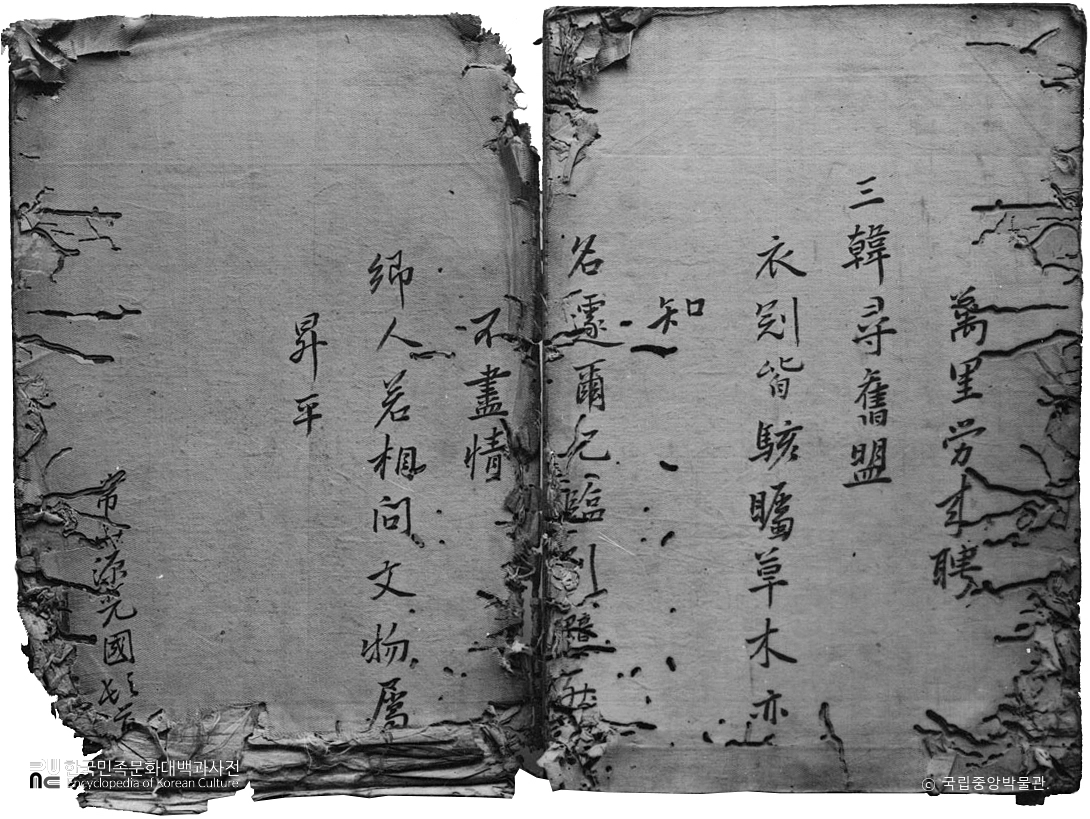 萬里労来聘
三韓尋舊盟
衣冠皆駭矚草木亦
知
名遽爾已臨別黯然
不盡情
鄉人若相問文物屬
昇平
常 源光國
한국민족문화대백과사전
Encyclopedia of Korean Culture
© 국립중앙박물관